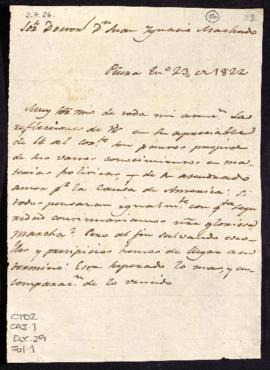 2.7.26.
26
3
Sor. Doctor Dn. Juan Ignacio Machado
Piura En.o 23, de 1822
Muy Sor. mio de toda mi
reflecciones de V. en su apreciable
de 14 del son pruevas propias
de sus vastos conocimientos en ma-
terias politicas, y de su acendrado
amor pr. la Causa de America: Si
todos pensaran igualmte. con qta.
continuariamos ntra. gloriosa
marcha? Pero al fin salvando esco-
llos y precipicios hemos de llegar a su
termino: Esta superado lo mas, y en
comparacn. de lo vencido
CTO2
CAJ. 1
Doc. 29
Fol 1